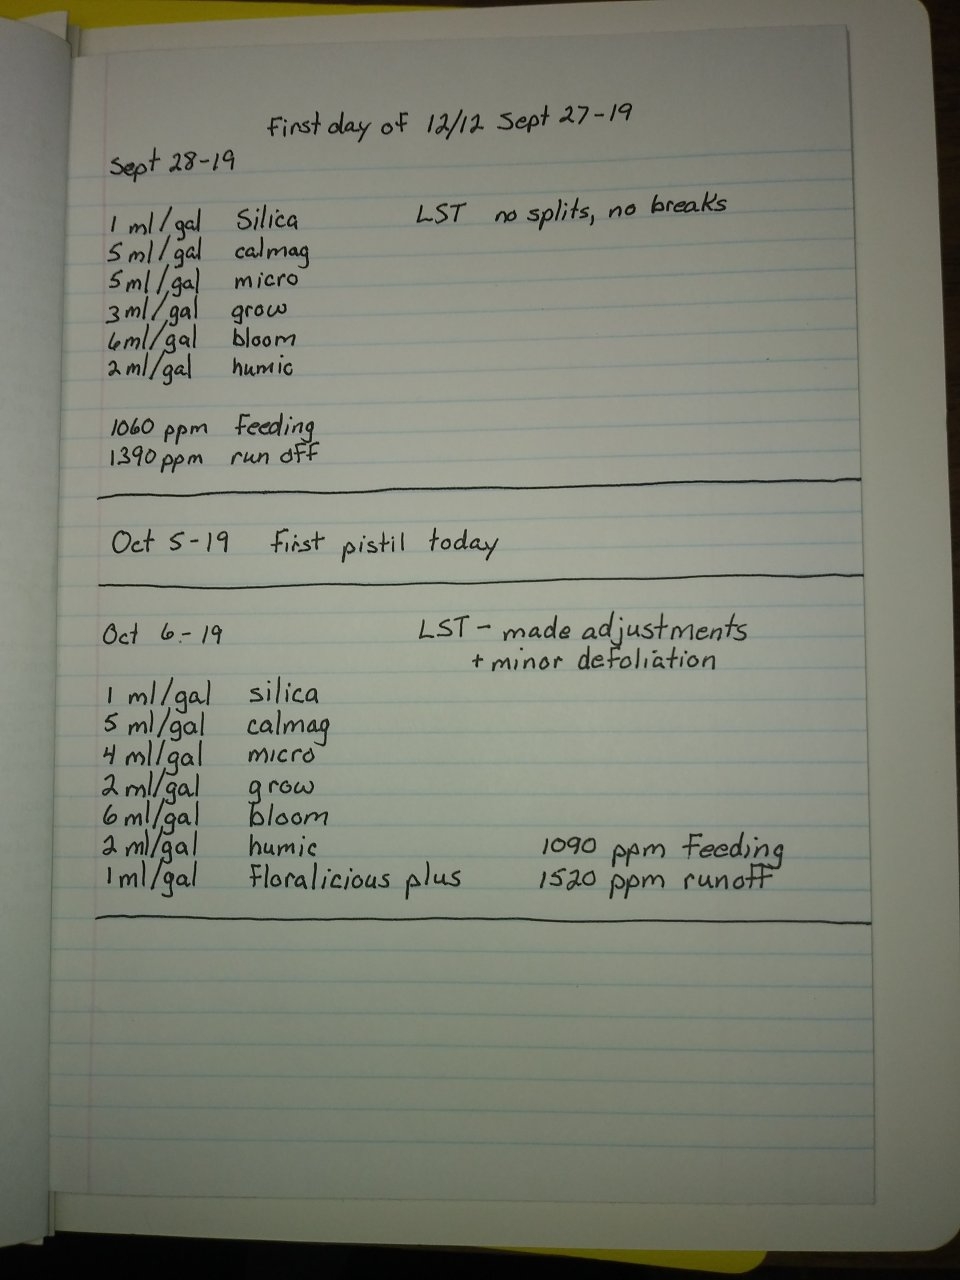 First day of 12/12 Sept 27-19
Sept 28-19
1 ml/gal Silica LST no splits, no breaks
5 ml/gal calmag
5 ml/gal micro
3 ml/gal grow
6 ml/gal bloom
2 ml/gal humic
1060 ppm feeding
1390 ppm run off
Oct 5-19 First pistil today
Oct 6-19 LST - made adjustments
+ minor defoliation
1 ml/gal silica
5 ml/gal calmag
4 ml/gal micro
2 ml/gal grow
6 ml/gal bloom
2 ml/gal humic 1090 ppm feeding
1 ml/gal Floralicious plus 1520 ppm runoff